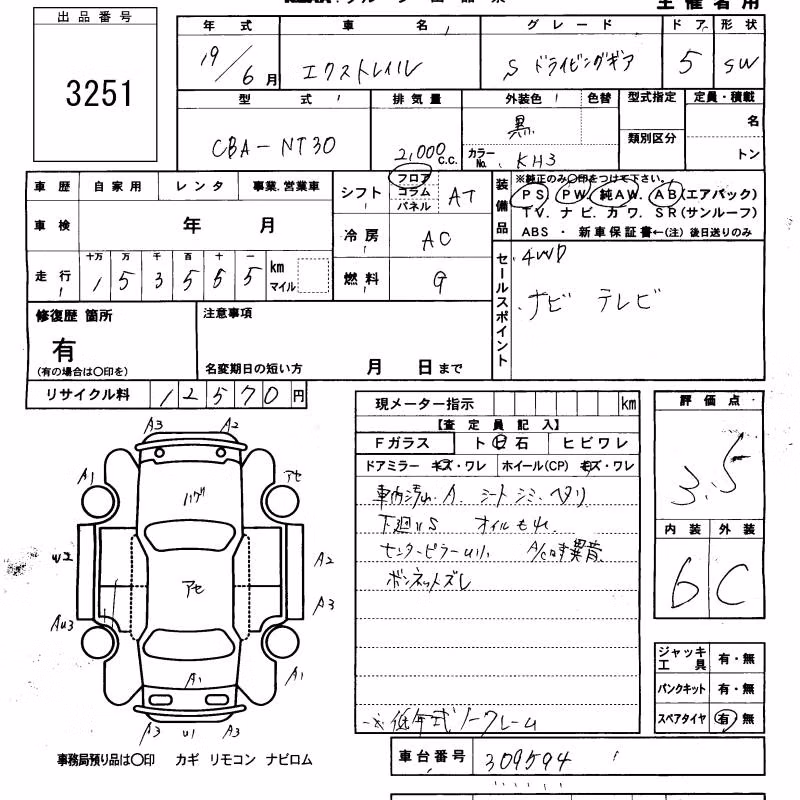 主催者用
出品番号
3251
年式 車名 グレード ドア 形状
19/6月 エクストレイル S ドライビングギア 5 SW
型式 排気量 外装色 色替 型式指定 定員・積載
CBA-NT30 2,000c.c. 黒 類別区分 名
カラーNo. KH3 トン
車歴 自家用 レンタ 事業.営業車
車検 年 月
走行 十万 万 千 百 十 一
1 5 3 5 5 5 km マイル
シフト フロア コラム パネル AT
冷房 AC
燃料 G
装備品
※純正のみ○印をつけて下さい。
PS PW 純AW. AB(エアバック)
TV. ナビ. カワ. SR(サンルーフ)
ABS ・ 新車保証書←(注) 後日送りのみ
セールスポイント
. 4WD
. ナビ テレビ
修復歴 箇所
有
(有の場合は○印を)
注意事項
名変期日の短い方 月 日まで
リサイクル料 12570円
現メーター指示 km
【査定員記入】
Fガラス ト 石 ヒビワレ
ドアミラー キズ・ワレ ホイール(CP) キズ・ワレ
車内汚れ. A. シートシミ. ヘタリ
下廻りS オイルもれ
センターピラー A/C時異音.
ボンネットズレ
※低年式ノークレーム
評価点
3.5
内装 外装
6 C
ジャッキ工具 有・無
パンクキット 有・無
スペアタイヤ 有・無
A3 A2
A1 アセ
ハゲ
U2 A2
アセ
A3
AU3
A1 A1
A3 U1 A3
事務局預り品は○印 カギ リモコン ナビロム
車台番号 309594